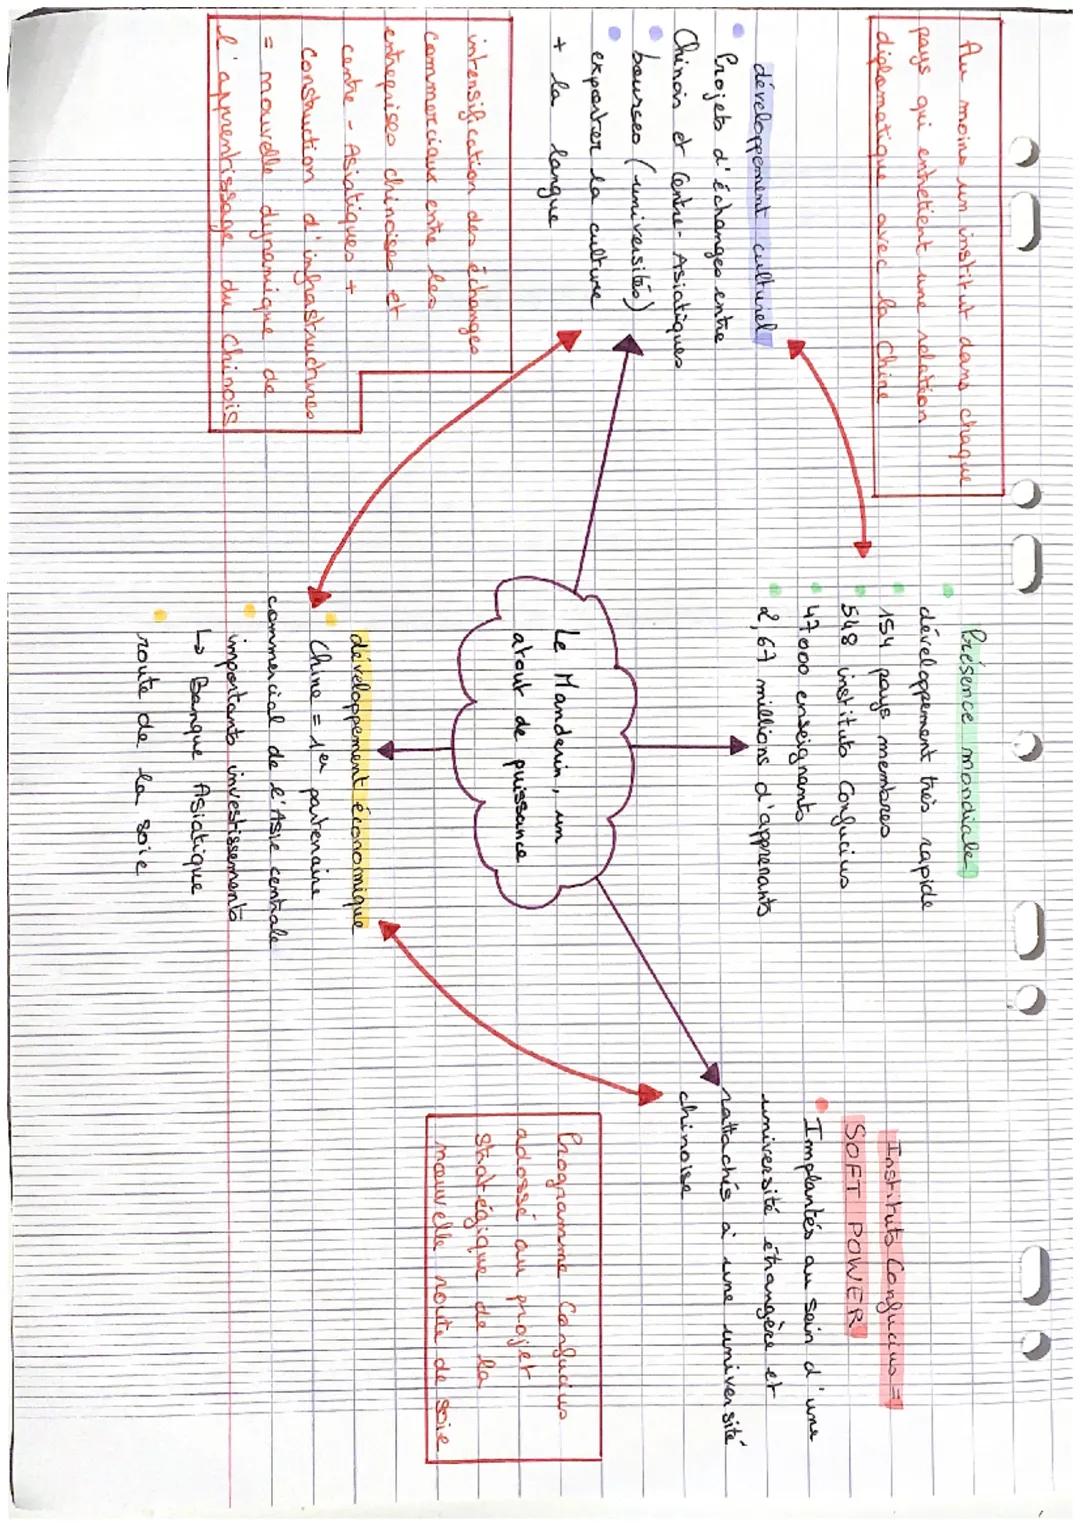 Au moins un institut dans chaque
pays qui entretient une relation
diplomatique avec la Chine
développement culturel
Projets d'échanges entre
Chinois et Centre-Asiatiques
bourses (universités)
exporter la culture
+ la langue
intensification des échanges
commerciaux entre les
entreprises chinoises et
centre-Asiatiques +
construction d'infrastructures
= nouvelle dynamique de
l'apprentissage du Chinois
Présence mondiale
développement très rapide
154 pays membres
548 instituts Confucius
47 000 enseignants
2,67 millions d'apprenants
Le Mandarin, un
atout de puissance
développement économique
Chine = 1er partenaire
commercial de l'Asie centrale
importants investissements
↳ Banque Asiatique
route de la soie
Instituts Confucius =
SOFT POWER
Implantés au sein d'une
université étrangère et
rattachés à une université
chinoise
Programme Confucius
adossé au projet
stratégique de la
nouvelle route de soie